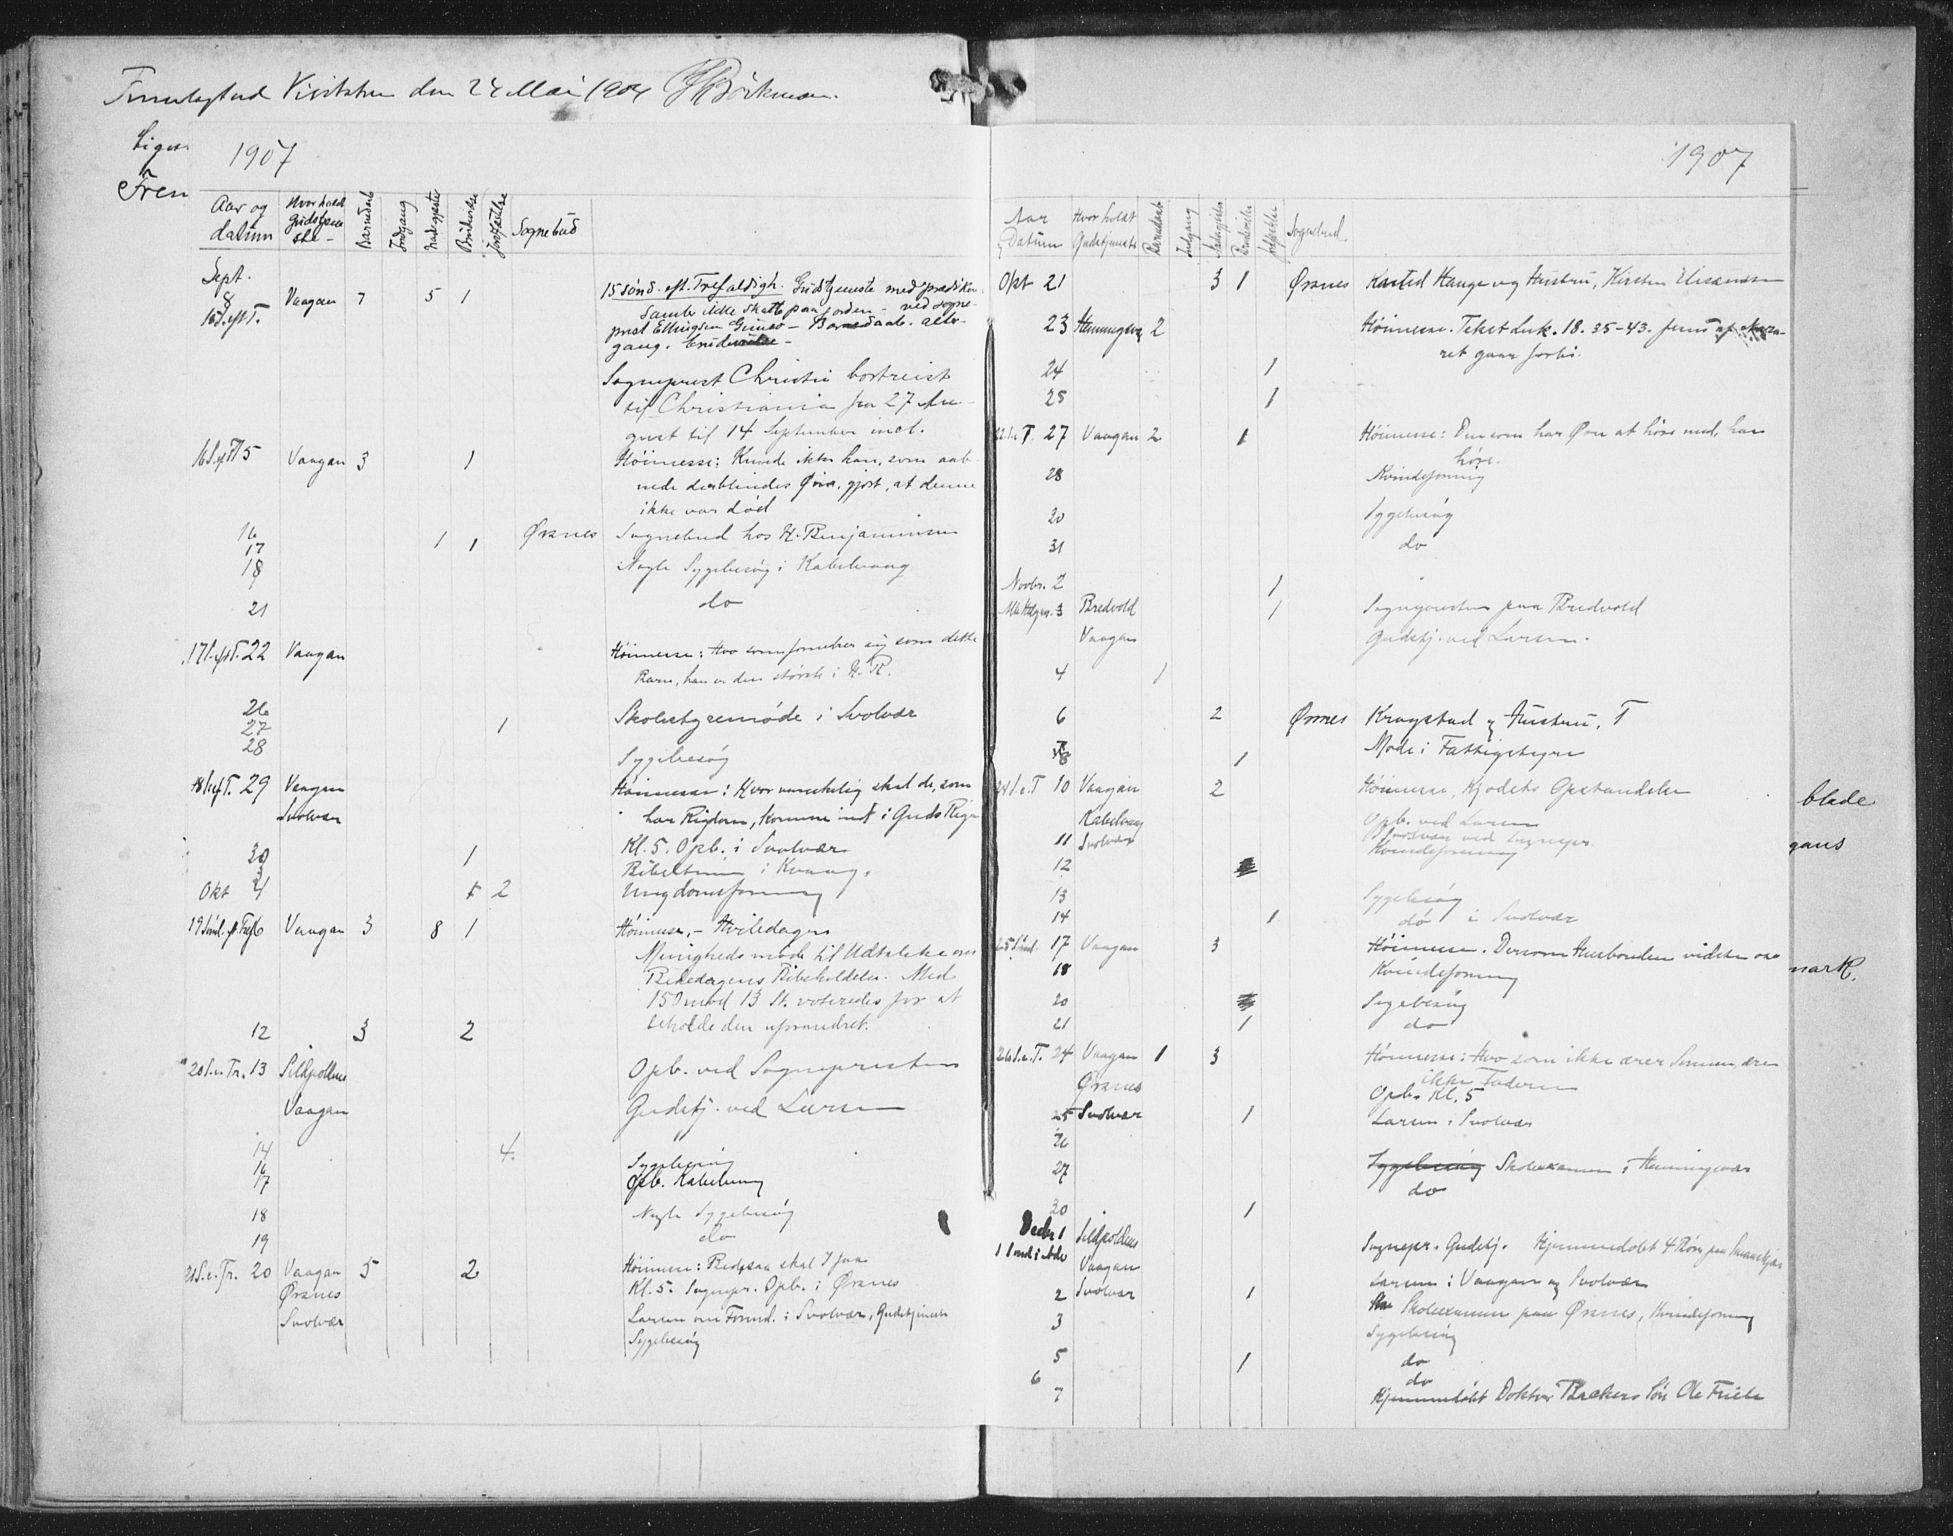 Fremlagt ved Visitatsen den 24 Mai 1904 Bøckman.
Ligesaa
Frem
1907
Aar og datum | Hvor holdt Gudstjeneste | Barnedaab | Indgang | Nadgjæste | Brudevielse | Jordfæstelse | Sognebud
Sept.
8 Vaagan 7 5 1 15 sønd. eft. Trefoldigh. Gudstjeneste med prædiken
16 S. eft T. Samler ikke skatte paa jorden - ved sogne-
prest Ellingsen Gimsø - Barnedaab. alter-
gang. Brudevielse -
Sogneprest Christie bortreist
til Christiania fra 27 Au-
gust til 14 September incl.
16 S. ef T 15 Vaagan 3 1 Høimesse: Kunde ikke han, som aab-
nede den blindes Øine, gjort, at denne
ikke var død
16 1 Ørsnes Sognebud hos H. Benjaminsen
17 1
18 Nogle Sygebesøg i Kabelvaag
21 do
17 S. eft T. 22 Vaagan Høimesse: Hvo som fornedrer sig som dette
Barn, han er den største i H. R.
26 Skolestyremøde i Svolvær
27 1
28 Sygebesøg
18 S. ef T. 29 Vaagan Høimesse: Hvor vanskelig skal de, som
Svolvær har Rigdom, komme ind i Guds Rige
Kl. 5. Opb. i Svolvær
30 1 Bibeltime i Kvaag.
Okt 4 2 Ungdomsforening
19 Sønd. ef Tref 6 Vaagan 3 8 1 Høimesse, - Hviledagen
Menighedsmøde til Udtalelse om
Bededagens Bibeholdelse. Med
150 mod 13 St. voteredes for at
beholde den uforandret.
12 3 2
20 S. e. Tr. 13 Sildpollen Opb. ved Sognepresten
Vaagan Gudstj. ved Larsen
14 4
16 Sygebesøg
17 Opb. Kabelvaag
18 Nogle Sygebesøg
19 do
21 S. e. Tr. 20 Vaagan 5 2 Høimesse: Bed, saa skal I faa
Ørsnes Kl. 5. Sognepr. Opb. i Ørsnes
Svolvær Larsen om Formd. i Svolvær, Gudstjeneste
Sygebesøg
1907
Aar Datum | Hvor holdt Gudstjeneste | Barnedaab | Indgang | Nadgjæste | Brudevielse | Jordfæstelse | Sognebud.
Okt 21 3 1 Ørsnes Karted Hauge og Hustru, Kirsten Elisæussen
23 Henningsv. 2 Høimesse. Tekst Luk. 18. 35-43. Jesus af Naza-
ret gaar forbi.
24 1
25 1
22 S. e T. 27 Vaagan 2 1 Høimesse: Den som har Øre at høre med, han
høre.
28 Kvindeforening
30 Sygebesøg
31 do
Novbr. 2 1
Alle Helgen. 3 Bredvold 1 Sognepresten paa Bredvold
Vaagan Gudstj. ved Larsen.
4 1
6 2 Ørsnes Krogstad og Hustru. T
Møde i Fattigstyre
8 1
24 S. e. T 10 Vaagan 2 Høimesse, Kjødets Opstandelse
Kabelvaag Opb. ved Larsen
11 Svolvær Svolvær ved Sognepr.
Kvindeforening
12
13 Sygebesøg
14 1 do i Svolvær
25 Sønd. 17 Vaagan 3 Høimesse. Dersom Husbonden vidste osv
18 Kvindeforening
20 Sygebesøg
21 1 do
26 S. e. T. 24 Vaagan 1 3 Høimesse: Hvo som ikke ærer Sønnen, ærer
ikke Faderen
Ørsnes Opb. Kl. 5
25 Svolvær 1 Larsen i Svolvær
26
27 Sygebesøg Skoleexamen i Henningsvær
do
30 1
Decbr 1 Sildpollen Sognepr. Gudstj. Hjemmedøbt 4 Børn paa
1 Sønd i Adv. Vaagan Larsen i Vaagan og Svolvær
2 Svolvær 1 Skoleexamen paa Ørsnes, Kvindeforening
3 Sygebesøg
5 1 do
6 do
7 Hjemmedøbt Doktor Backers Søn Ole Friele
blade
gans
mark.